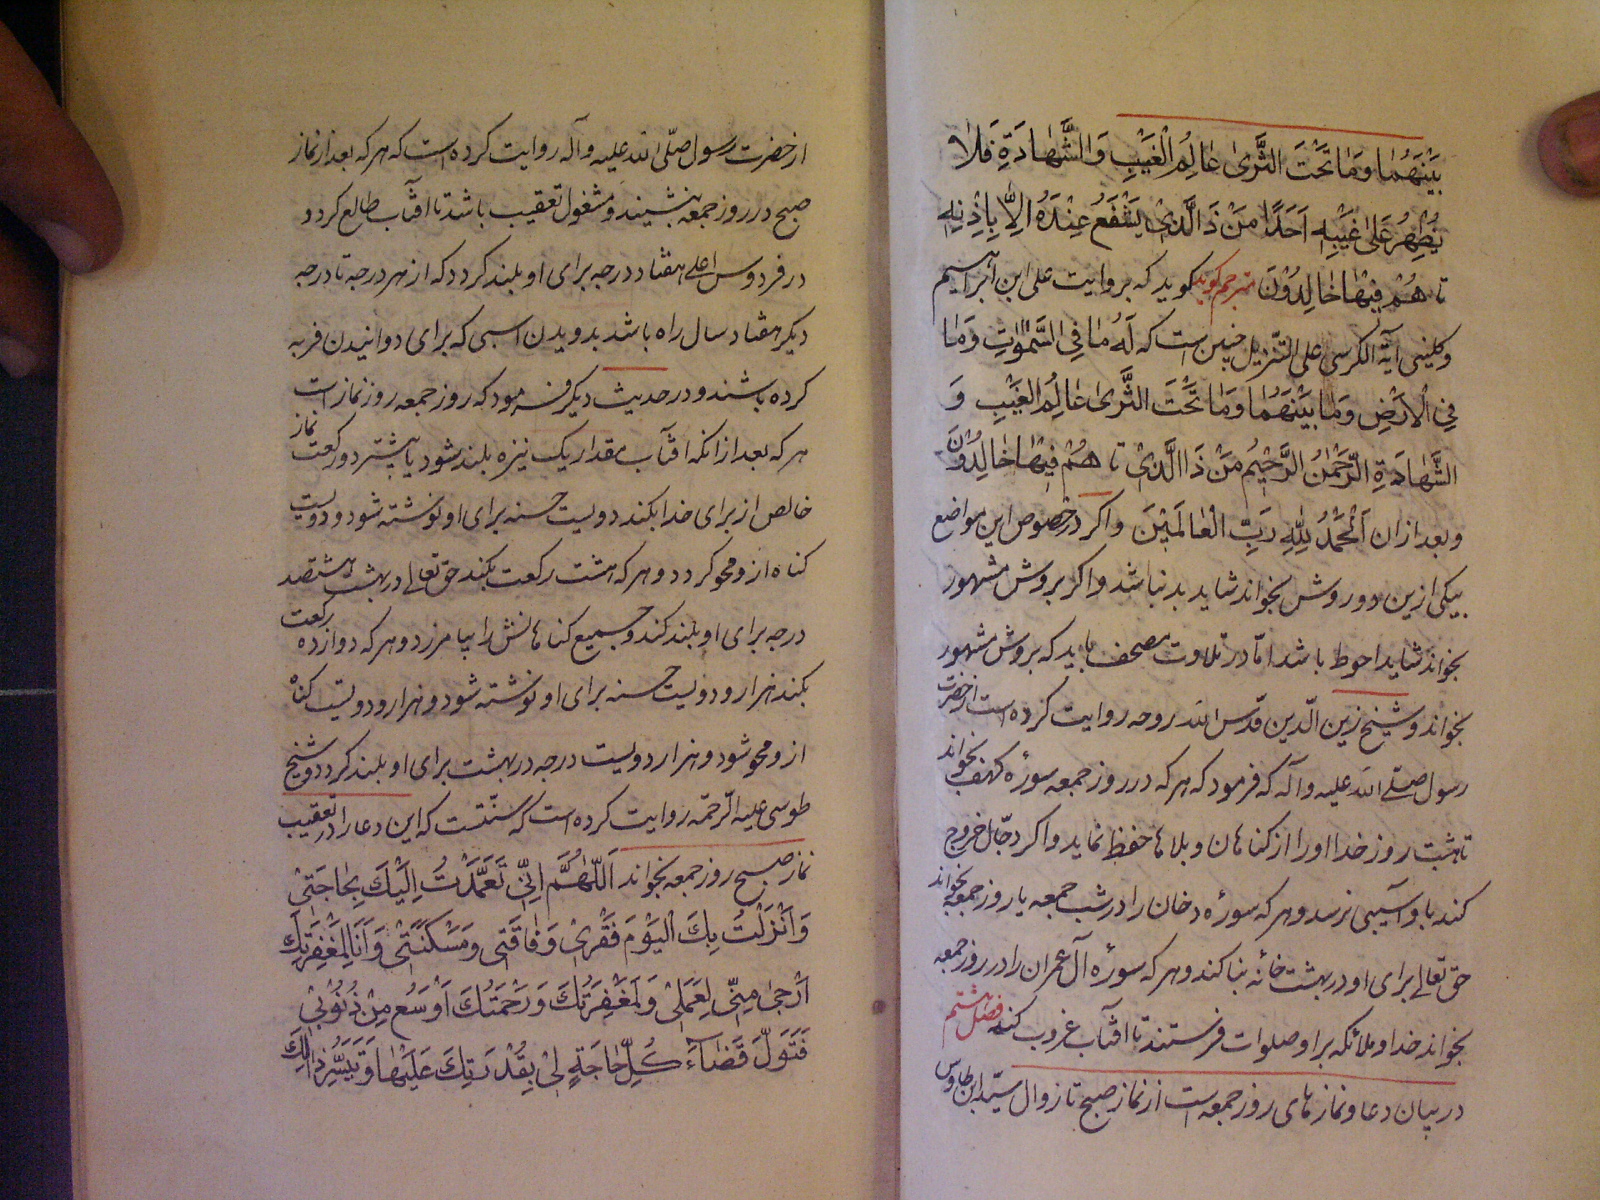 بَيْنَهُمَا وَمَا تَحْتَ الثَّرىٰ عَالِمُ الْغَيْبِ وَالشَّهَادَةِ فَلَا
يُظْهِرُ عَلىٰ غَيْبِهِ اَحَدًا مَنْ ذَا الَّذِىْ يَشْفَعُ عِنْدَهُ اِلَّا بِاِذْنِهِ
تا هُمْ فِيْهَا خَالِدُوْنَ مترجم کوید کوید که بروایت علی ابن ابراهیم
و کلینی آیة الکرسی علی التنزیل چنین است که لَهُ مَا فِى السَّمٰوٰاتِ وَمَا
فِى الْاَرْضِ وَمَا بَيْنَهُمَا وَمَا تَحْتَ الثَّرىٰ عَالِمُ الْغَيْبِ وَ
الشَّهَادَةِ الرَّحْمٰنُ الرَّحِيْمُ مَنْ ذَا الَّذِىْ تا هُمْ فِيْهَا خَالِدُوْنَ
و بعد ازان اَلْحَمْدُ لِلّٰهِ رَبِّ الْعَالَمِيْنَ و اکر در خصوص این مواضع
بیکی ازین دو روش بخواند شاید بد نباشد و اکر بروش مشهور
بخواند شاید احوط باشد امّا در تلاوت مصحف باید که بروش مشهور
بخواند و شیخ زین الدّین قدّس الله روحه روایت کرده است از حضرت
رسول صلّی الله علیه و آله که فرمود که هر که در روز جمعه سورۀ کهف بخواند
تا هشت روز خدا او را از کناهان و بلاها حفظ نماید و اکر دجّال خروج
کند باو آسیبی نرسد و هر که سورۀ دخان را در شب جمعه یا روز جمعه بخواند
حق تعالی برای او در بهشت خانه بنا کند و هر که سورۀ آل عمران را در روز جمعه
بخواند خدا و ملائکه بر او صلوات فرستند تا آفتاب غروب کند فصل هشتم
در بیان دعا و نمازهای روز جمعه است از نماز صبح تا زوال سیّد ابن طاوس
از حضرت رسول صلّی الله علیه و آله روایت کرده است که هر که بعد از نماز
صبح در روز جمعه بنشیند و مشغول تعقیب باشد تا آفتاب طالع کردد
در فردوس اعلی هفتاد درجه برای او بلند کردد که از هر درجه تا درجه
دیکر هفتاد سال راه باشد بدویدن اسبی که برای دوانیدن فربه
کرده باشند و در حدیث دیکر فرمود که روز جمعه روز نماز است
هر که بعد از آنکه آفتاب بمقدار یک نیزه بلند شود یا پیشتر دو رکعت نماز
خالص از برای خدا بکند دویست حسنه برای او نوشته شود و دویست
کناه ازو محو کردد و هر که هشت رکعت بکند حق تعالی در بهشت هشتصد
درجه برای او بلند کند و جمیع کناهانش را بیامرزد و هر که دوازده رکعت
بکند هزار و دویست حسنه برای او نوشته شود و هزار و دویست کناه
ازو محو شود و هزار دویست درجه در بهشت برای او بلند کردد و شیخ
طوسی علیه الرّحمّه روایت کرده است که سنّتست که این دعا را در تعقیب
نماز صبح روز جمعه بخواند اَللّٰهُمَّ اِنّىْ تَعَمَّدْتُ اِلَيْكَ بِحَاجَتِىْ
وَاَنْزَلْتُ بِكَ الْيَوْمَ فَقْرِىْ وَفَاقَتِى وَمَسْكَنَتِىْ وَاَنَا لِمَغْفِرَتِكَ
اَرْجىٰ مِنّى لِعَمَلِىْ وَلَمَغْفِرَتُكَ وَرَحْمَتُكَ اَوْسَعُ مِنْ ذُنُوْبِىْ
فَتَوَلَّ قَضَاءَ كُلِّ حَاجَةٍ لِىْ بِقُدْرَتِكَ عَلَيْهَا وَتَيَسُّرِ ذٰلِكَ